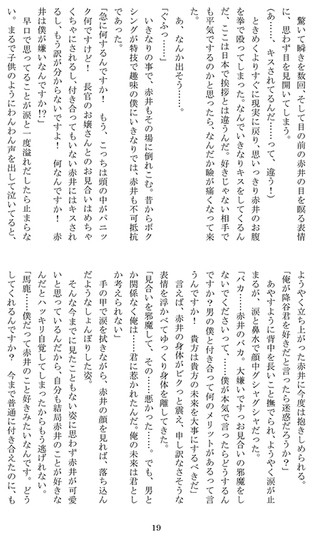 驚いて瞬きを数回、そして目の前の赤井の目を眠る表情
に、思わず目を見開いてしまう。
（あ……、キスされてるんだ……って、違う！）
ときめくよりすぐに現実に戻り、思いっきり赤井のお腹
を拳で殴ってしまった。なんでいきなりキスをしてくるん
だ、ここは日本で挨拶とは違うんだ。好きじゃない相手で
も平気でするのかと思ったら、なんだか瞼が痛くなって来
た。
あ、なんか出そう……。
「ぐふっ……」
いきなりの事で、赤井もその場に倒れこむ。昔からボク
シングが特技で趣味の僕にいきなりでは、赤井も不可抗力
であった。
「急に何するんですか！　もう、こっちは頭の中がパニッ
ク何ですけど！　長官のお嬢さんとのお見合いはめちゃ
くちゃにされるし、付き合ってもいない赤井にはキスされ
るし、もう訳が分からないですよ！　何なんですか！　赤
井は僕が嫌いなんですか!?」
早口で思ってることが涙と一度溢れだしたら止まらな
い。まるで子供のようにわんわん声を出して泣いてると、
ようやく立ち上がった赤井に今度は抱きしめられる。
「俺が降谷君を好きだと言ったら迷惑だろうか？」
あやすように背中を長いこと撫でられ、ようやく涙が止
まるが、涙と鼻水で顔中グシャグシャだった。
「バカ……赤井のバカ。大嫌いですっお見合いの邪魔をし
ないでくださいっ！って、……僕が本気で言ったらどうするん
ですか？男の僕と付き合って何のメリットがあるって言
うんですか！　貴方は貴方の未来を大事にするべきだ」
言えば、赤井の身体がピクっと震え、申し訳なさそうな
表情を浮かべてゆっくり身体を離してきた。
「見合いを邪魔して、その……悪かった……。でも、男と
か関係なく俺は……君に惹かれたんだ。俺の未来は君とし
か考えられない」
手の甲で涙を拭きながら、赤井の顔を見れば、落ち込ん
だようなしょんぼりした姿。
そんな今までに見たこともない姿に思わず赤井が可愛
いと思っているんだから、自分も結局赤井のことが好きな
んだとハッキリ自覚してしまったからもう逃げれない。
「馬鹿……僕だって赤井のこと好きみたいなんです。どう
してくれるんですか？　今まで普通に付き合えたのに、も
19